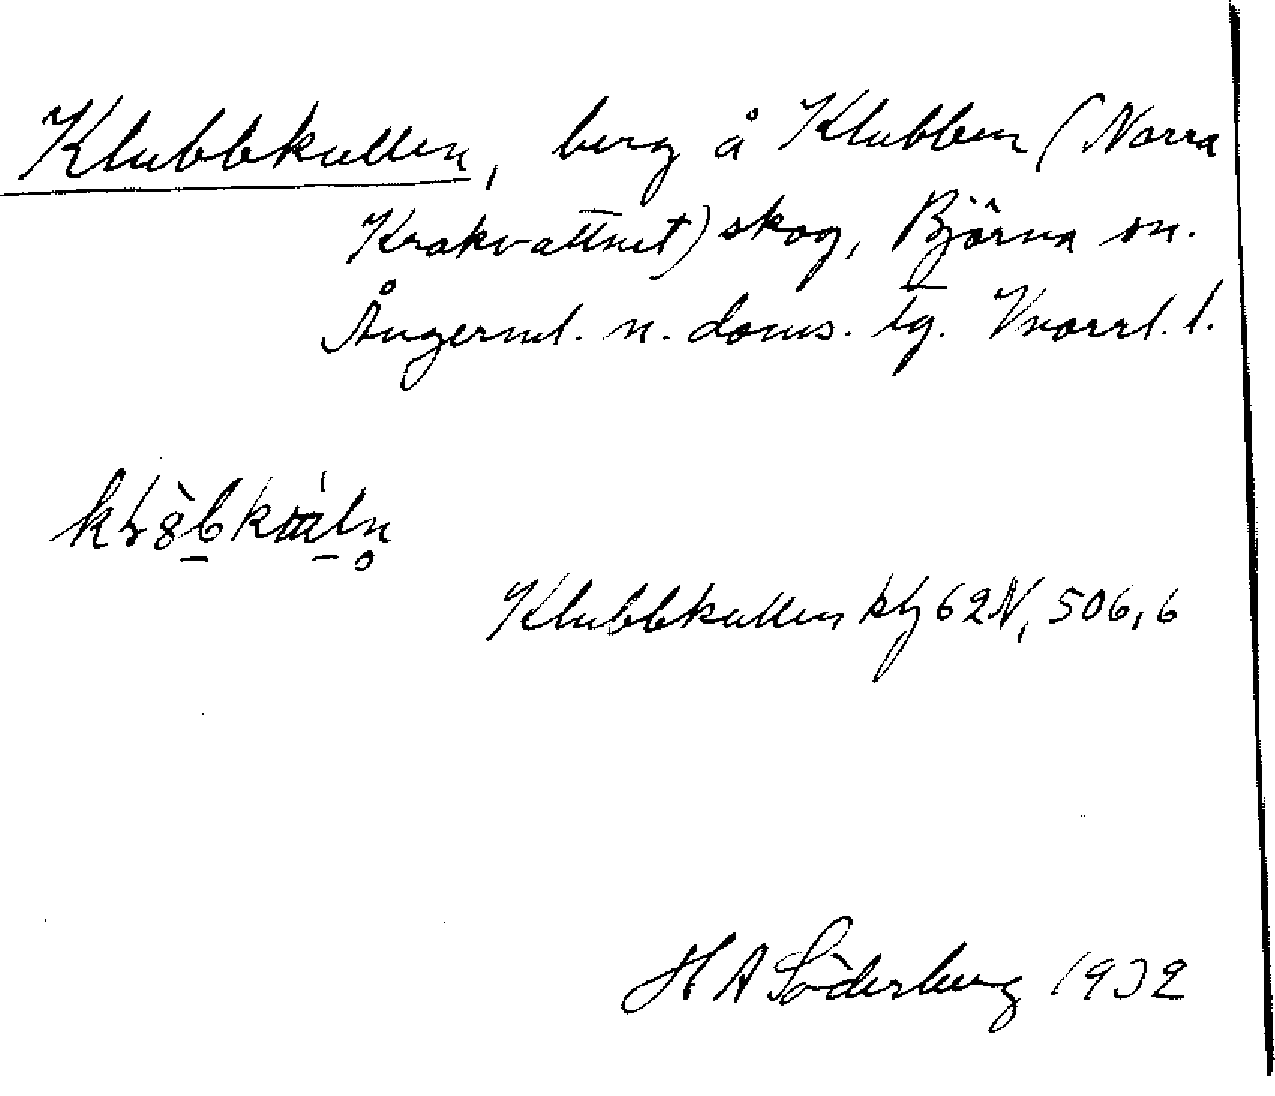 Klubbkullen, berg å Klubben (Norra
Krakvattnet) skog, Björna sn.
Ångerml. n. doms. tg. Vnorrl. l.
Klubbkullen kbl 62N, 506,6
H A Söderberg 1932